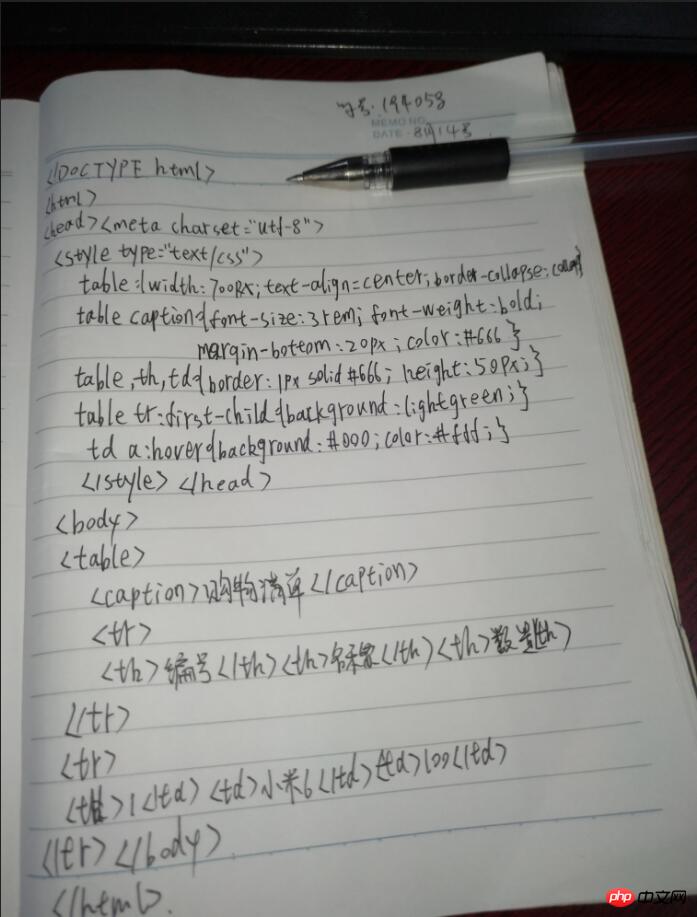 学号:194058
MEMO NO.
DATE 8月14号
<!DOCTYPE html>
<html>
<head><meta charset="utf-8">
<style type="text/css">
table:{width:700px;text-align=center;border-collapse:
table caption{font-size:3rem; font-weight:bold;
margin-bottom:20px; color:#666}
table,th,td{border:1px solid #666; height:50px;}
table tr:first-child{background:lightgreen;}
td a:hover{background:#000;color:#fff;}
</style></head>
<body>
<table>
<caption>购物清单</caption>
<tr>
<th>编号</th><th>名称</th><th>数量</th>
</tr>
<tr>
<td>1</td><td>小米6</td><td>100</td>
</tr></body>
</html>.
php 中文网